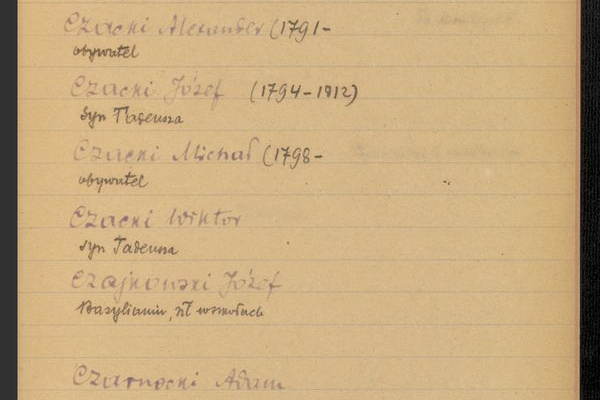 Czacki Alexander (1791-
obywatel
Czacki Józef (1794-1812)
syn Tadeusza
Czacki Michał (1798-
obywatel
Czacki Wiktor
syn Tadeusza
Czajkowski Józef
Bazylianin, w szkołach
Czarnocki Adam